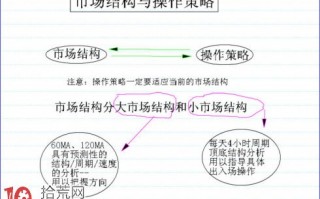 市场结构与操作策略
市场结构
操作策略
注意：操作策略一定要适应当前的市场结构
市场结构分大市场结构和小市场结构
60MA、120MA
具有预测性的
结构/周期/速度
的分析--
用以把握方向
每天4小时周期
顶底结构分析
用以指导具体
出入场操作
拾荒网